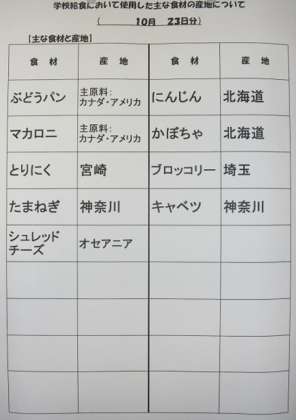 学校給食において使用した主な食材の産地について
( 10月 23日分)
【主な食材と産地】
食 材 産 地 食 材 産 地
ぶどうパン 主原料: カナダ・アメリカ にんじん 北海道
マカロニ 主原料: カナダ・アメリカ かぼちゃ 北海道
とりにく 宮崎 ブロッコリー 埼玉
たまねぎ 神奈川 キャベツ 神奈川
シュレッド
チーズ オセアニア